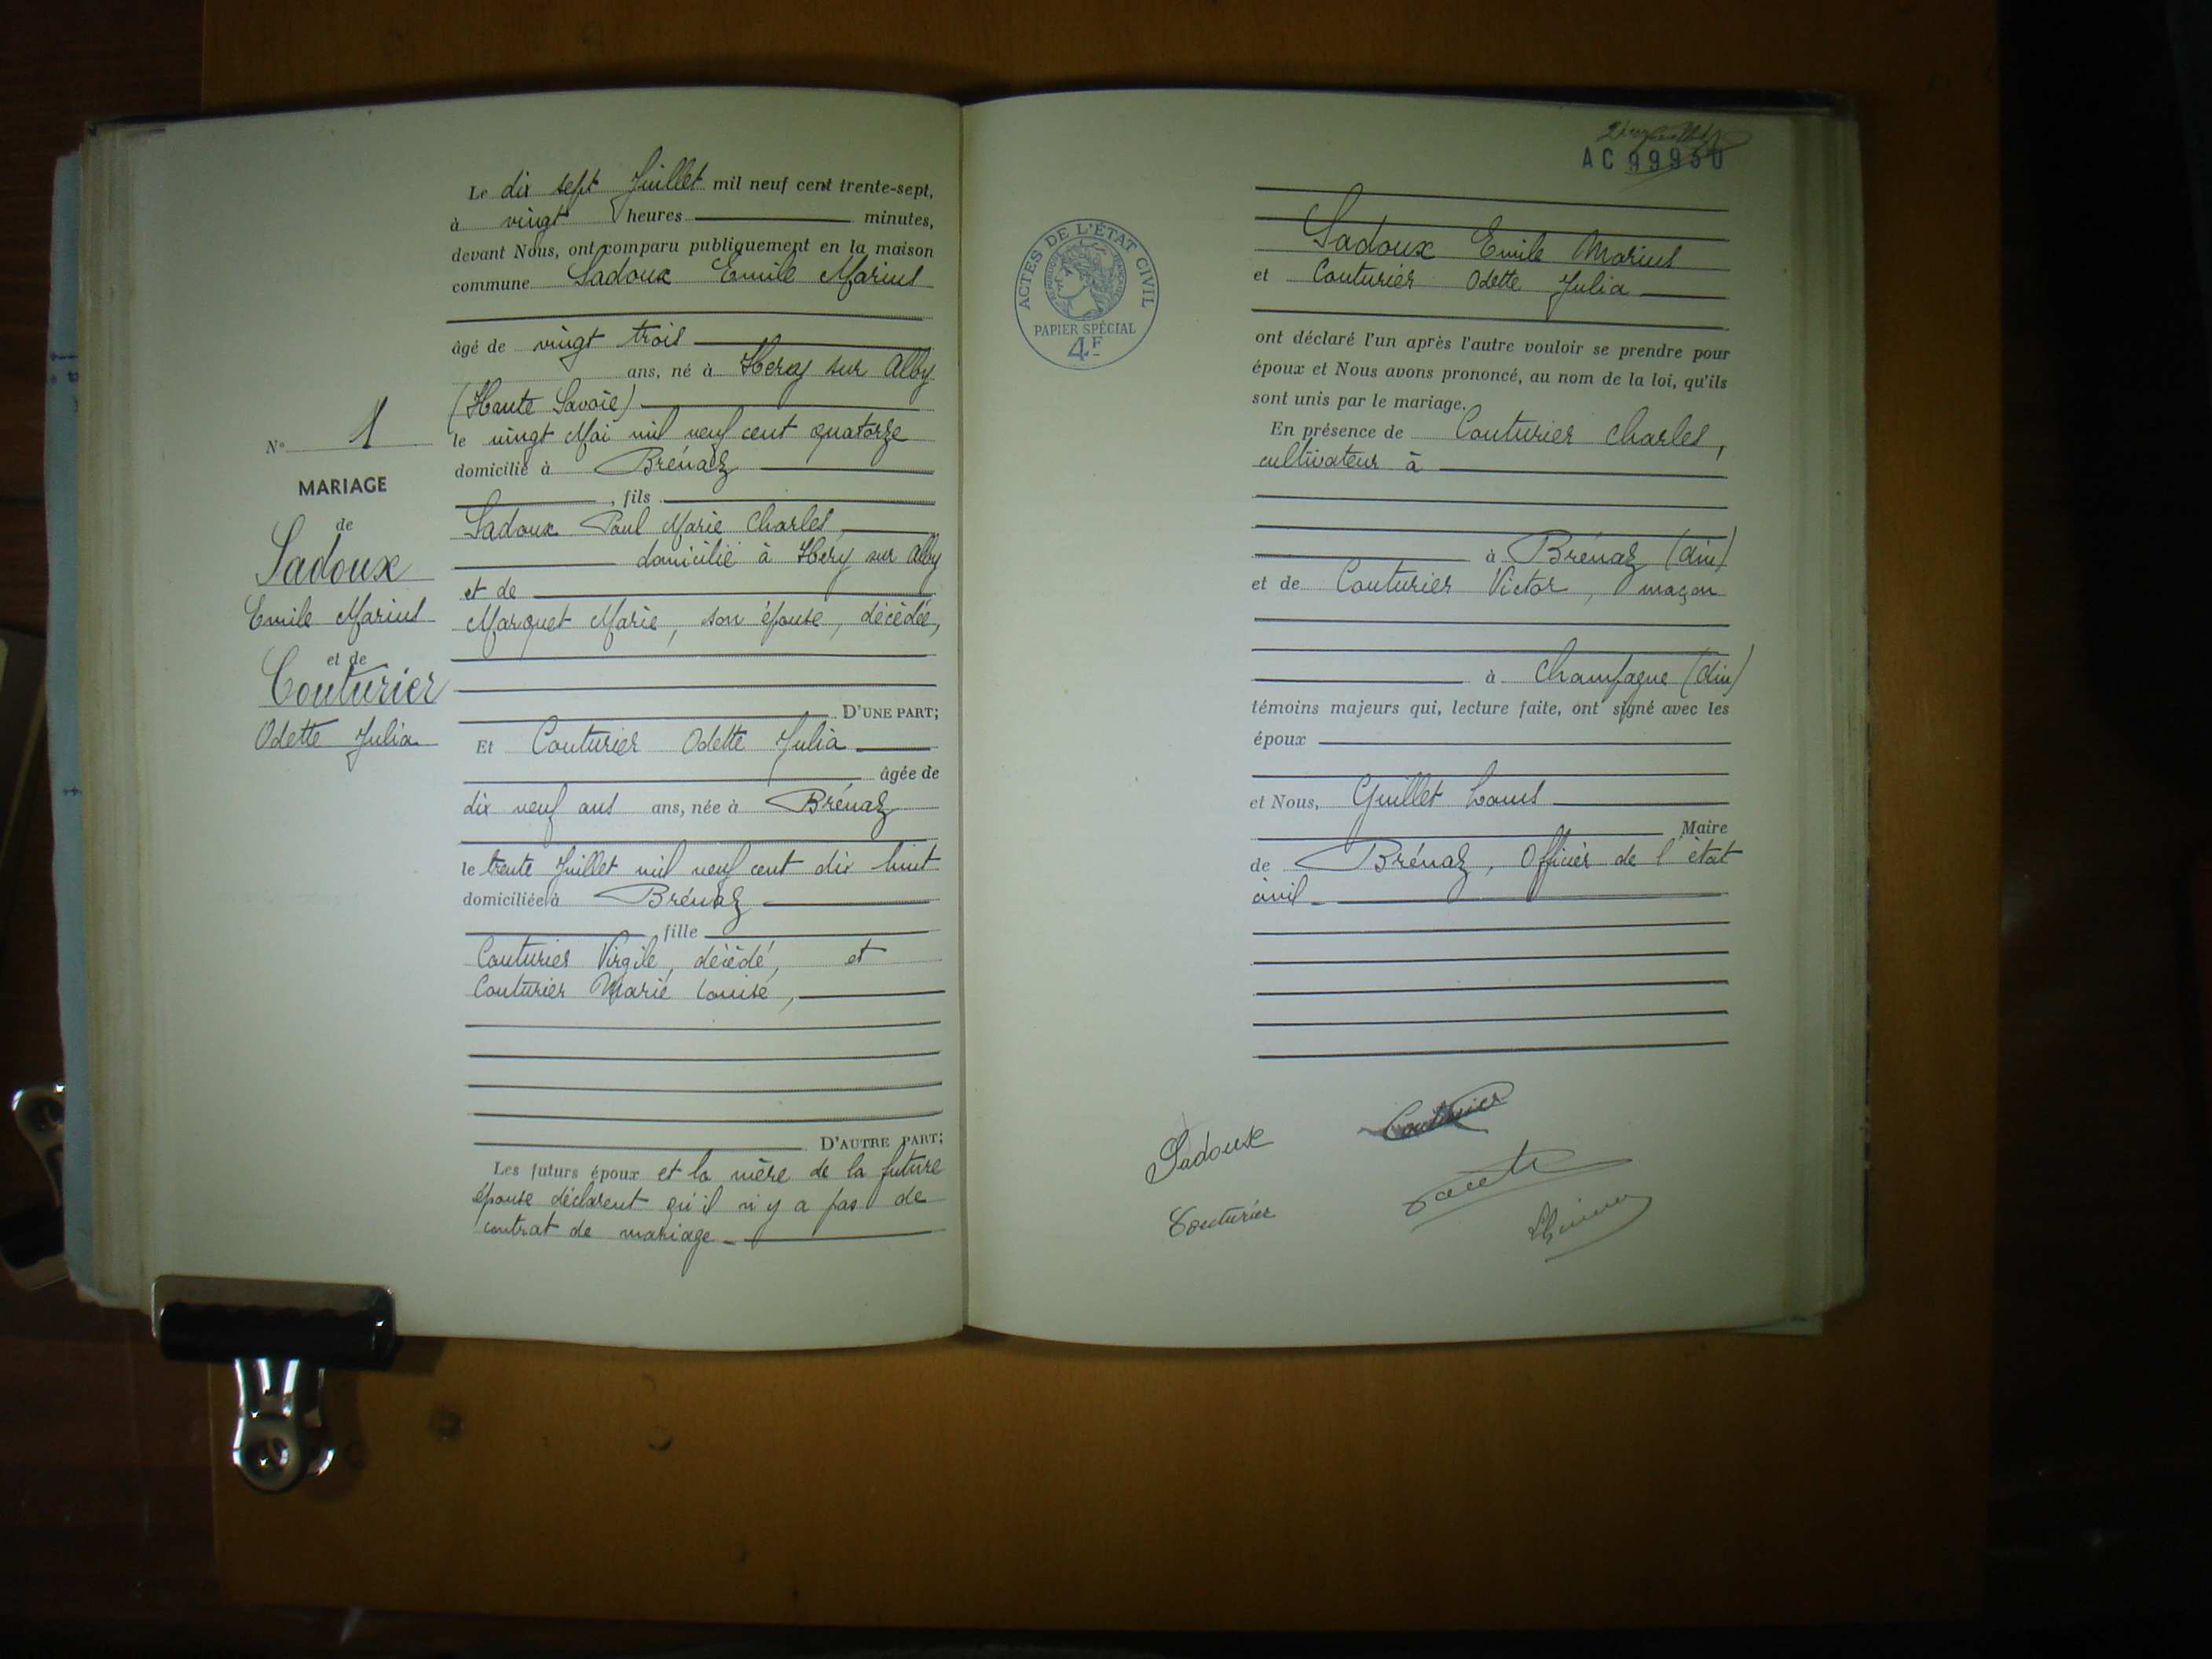 N° 1
MARIAGE
de
Sadoux
Emile Marius
et de
Couturier
Odette Julia
Le dix sept Juillet mil neuf cent trente-sept,
à vingt heures minutes,
devant Nous, ont comparu publiquement en la maison
commune Sadoux Emile Marius
âgé de vingt trois
ans, né à Hery sur Alby
(Haute Savoie)
le vingt Mai mil neuf cent quatorze
domicilié à Brénaz
, fils
Sadoux Paul Marie Charles,
domicilié à Héry sur Alby
et de
Marquet Marie, son épouse, décédée,
D'UNE PART;
Et Couturier Odette Julia
âgée de
dix neuf ans ans, née à Brénaz
le trente Juillet mil neuf cent dix huit
domiciliée à Brénaz
fille
Couturier Virgile, décédé, et
Couturier Marie Louise,
D'AUTRE PART;
Les futurs époux et la mère de la future
épouse déclarent qu'il n'y a pas de
contrat de mariage.
AC 99950
ACTES DE L'ÉTAT CIVIL
RÉPUBLIQUE FRANÇAISE
PAPIER SPÉCIAL
4F
Sadoux Emile Marius
et Couturier Odette Julia
ont déclaré l'un après l'autre vouloir se prendre pour
époux et Nous avons prononcé, au nom de la loi, qu'ils
sont unis par le mariage.
En présence de Couturier Charles,
cultivateur à
à Brénaz (Ain)
et de Couturier Victor, maçon
à Champagne (Ain)
témoins majeurs qui, lecture faite, ont signé avec les
époux
et Nous, Guillet Louis
Maire
de Brénaz, Officier de l'état
civil
Sadoux
Couturier
Couturier